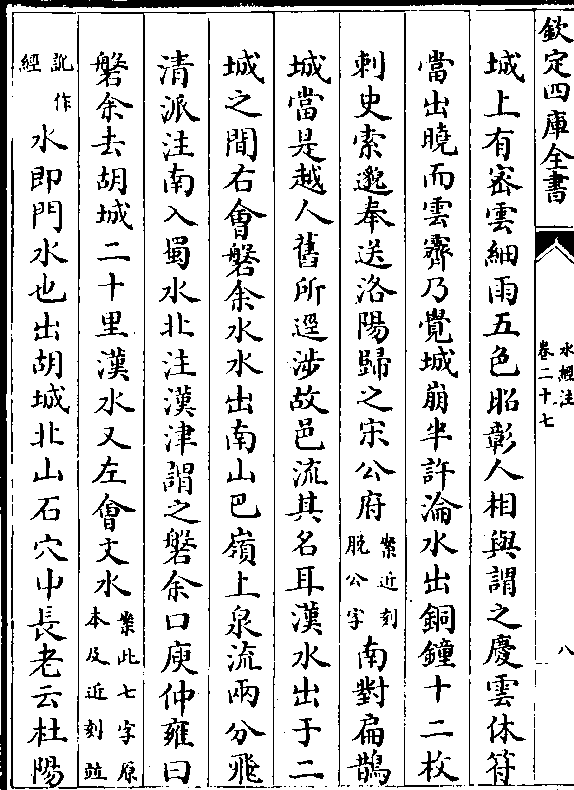 欽定四庫全書
水經注
卷二十七
八
城上有宻雲細雨五色昭彰人相與謂之慶雲休符
當出曉而雲霽乃覺城崩半許淪水出銅鐘十二枚
刺史索邈奉送洛陽歸之宋公府案近刻脱公字南對扁鵲
城當是越人舊所逕涉故邑流其名耳漢水出于二
城之間右會磐余水水出南山巴嶺上泉流兩分飛
清派注南入蜀水北注漢津謂之磐余口庾仲雍曰
磐余去胡城二十里漢水又左會文水案此七字原本及近刻竝
訛作經水即門水也出胡城北山石穴中長老云杜陽